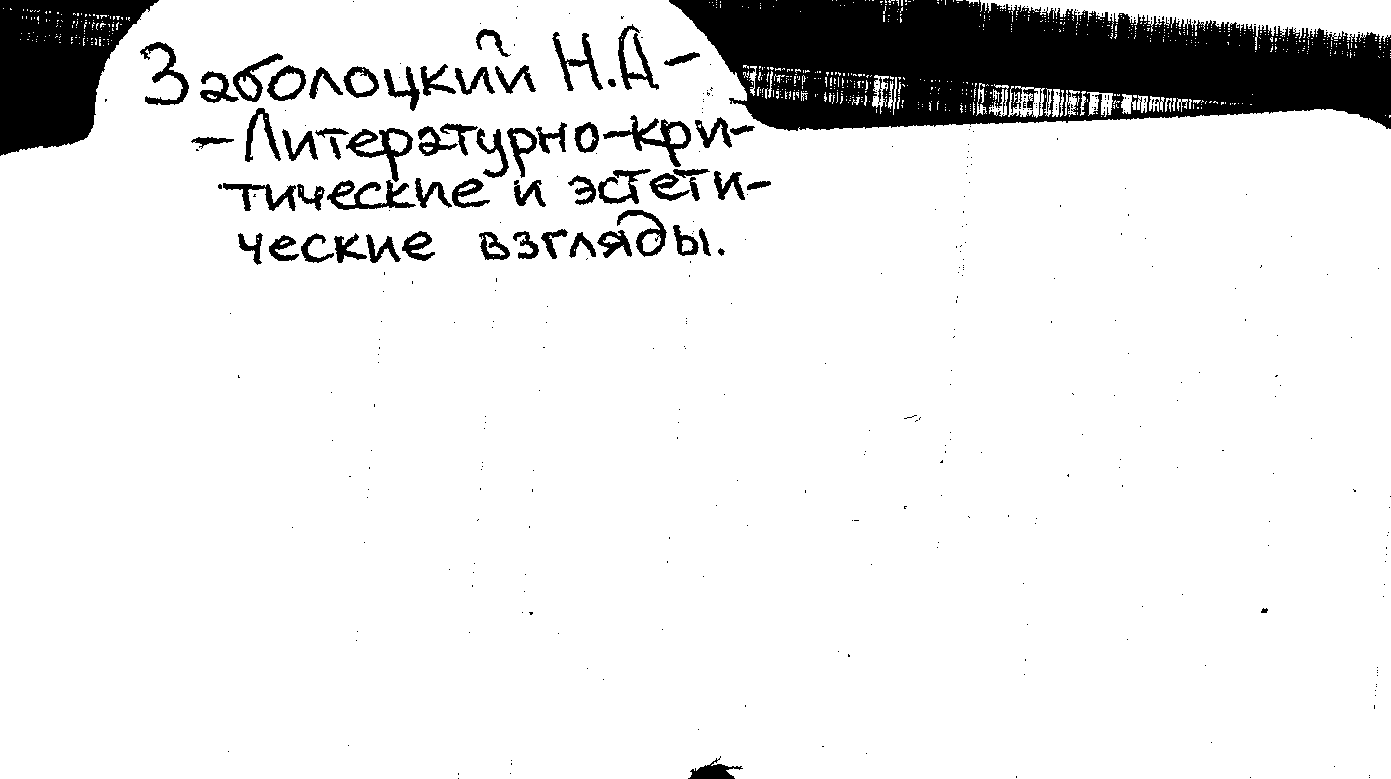 Заболоцкий Н.А –
– Литературно-кри-
тические и эстети-
ческие взгляды.